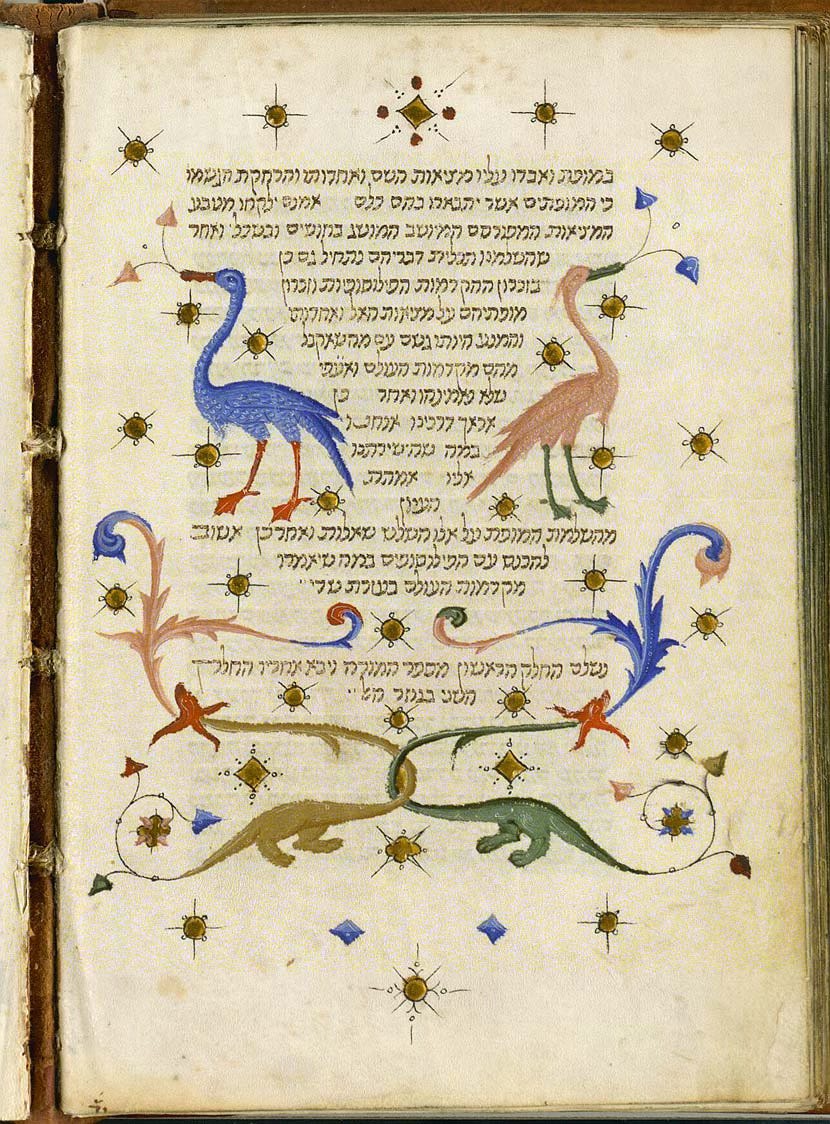 במופת ואבדו עליו מציאות השם ואחדותו והרחקת הגשמו
כי המופתים אשר יתבארו בהם כלם אמנם ילקחו מטבע
המציאות המפורסם המיושב המושג בחושים ובשכל ואחר
שהשלמנו תכלית דבריהם נתחיל גם כן
בזכרון ההקדמות הפילוסופיות וזכרון
מופתיהם על מציאות האל ואחדותו
והמנע היותו גשם עם מה שאקבל
מהם מקדמות העולם ואע״פי
שלא נאמינהו ואחר כן
אראך דרכינו אנחנו
במה שהישירנו
אליו אמתת
העיון
מהשלמת המופת על אלו השלש שאלות ואחר כן אשוב
להכנס עם הפילוסופים במה שיאמרו
מקדמות העולם בעזרת שדי
נשלם החלק הראשון מספר המורה ויבא אחריו החלק
השני בגזר האל